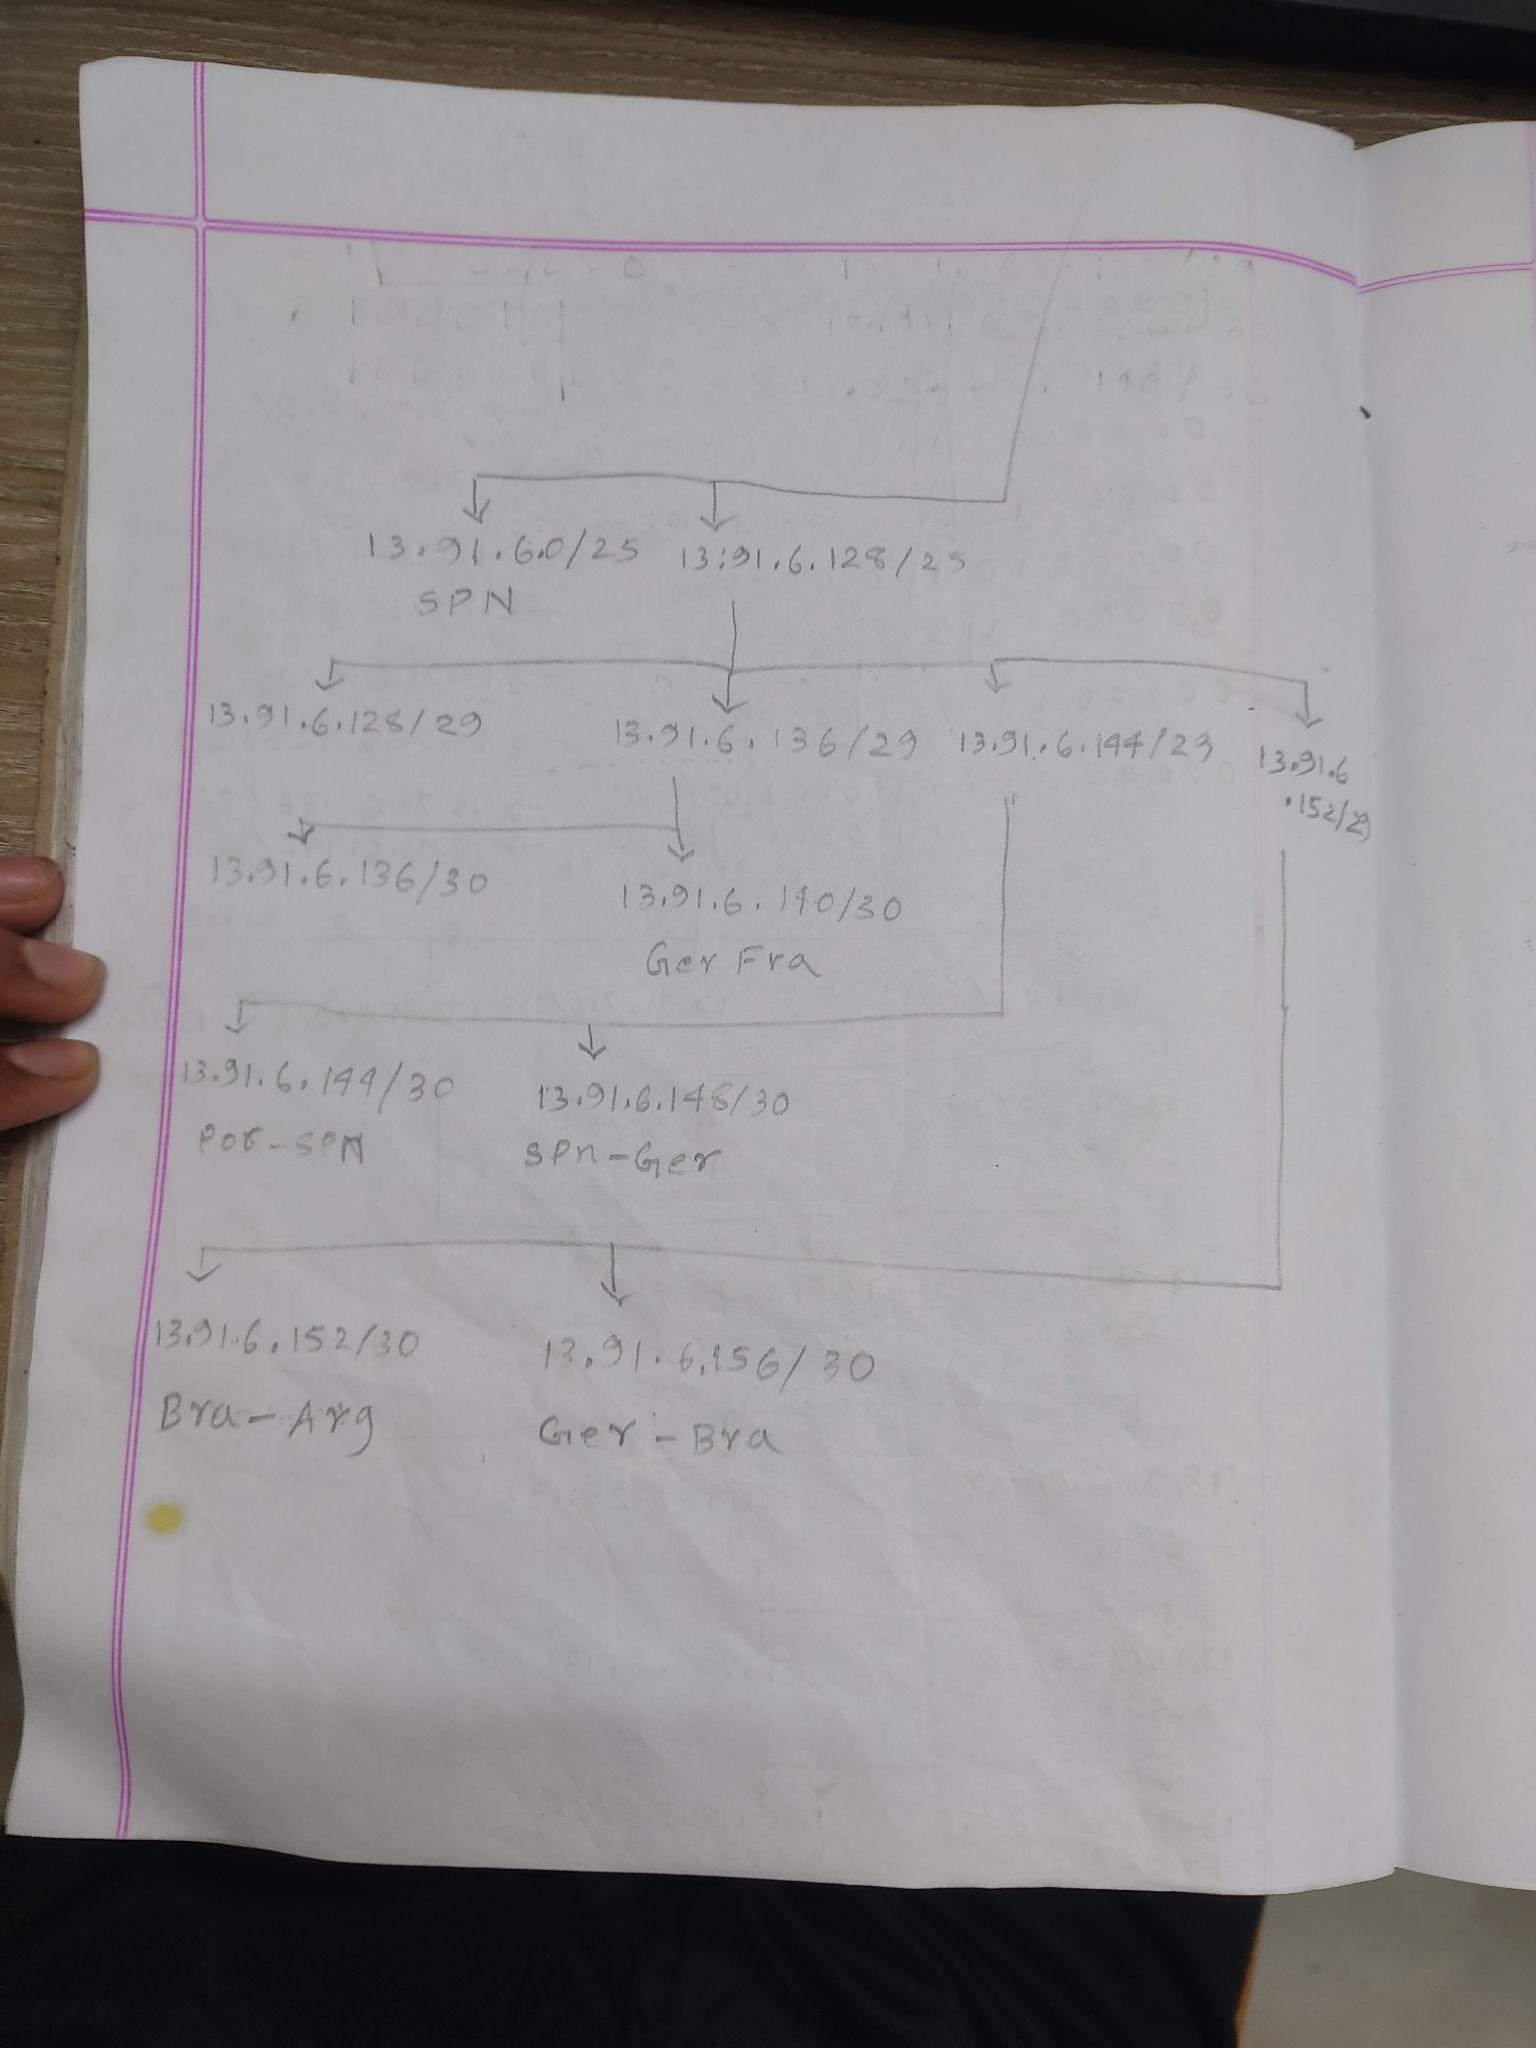 13.91.6.0/25 13.91.6.128/25
SPN
13.91.6.128/29 13.91.6.136/29 13.91.6.144/29 13.91.6
.152/29
13.91.6.136/30 13.91.6.140/30
Ger Fra
13.91.6.144/30 13.91.6.148/30
Por-SPN SPn-Ger
13.91.6.152/30 13.91.6.156/30
Bra-Arg Ger-Bra